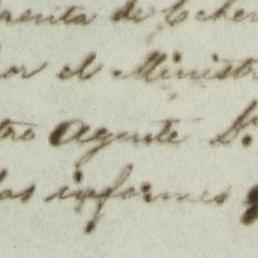 renta de Eche
or el Minist
tro Agente D.
los informes